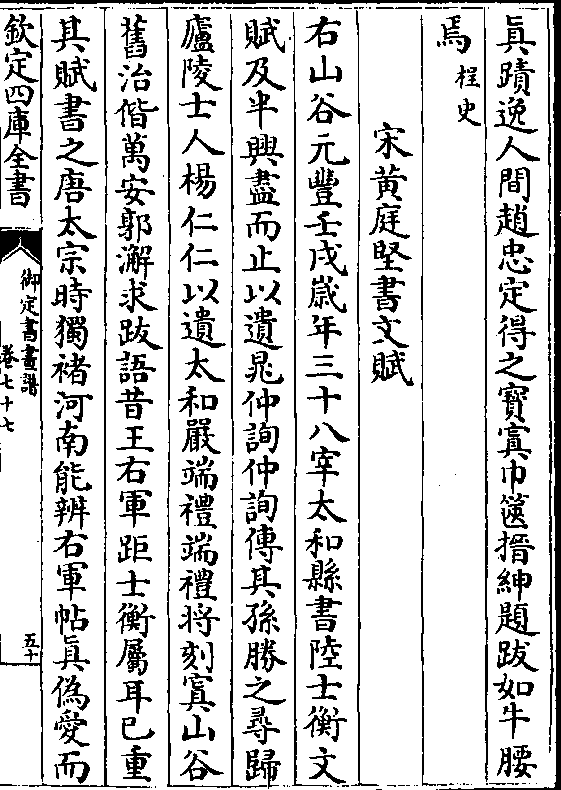 真蹟逸人間趙忠定得之寳寘巾篋搢紳題跋如牛腰
焉桯史
宋黄庭堅書文賦
右山谷元豐壬戌嵗年三十八宰太和縣書陸士衡文
賦及半興盡而止以遺晁仲詢仲詢傳其孫勝之尋歸
廬陵士人楊仁仁以遺太和嚴端禮端禮將刻寘山谷
舊治偕萬安郭澥求跋語昔王右軍距士衡屬耳已重
其賦書之唐太宗時獨褚河南能辨右軍帖真偽愛而
欽定四庫全書
御定書畫譜
卷七十七
五十